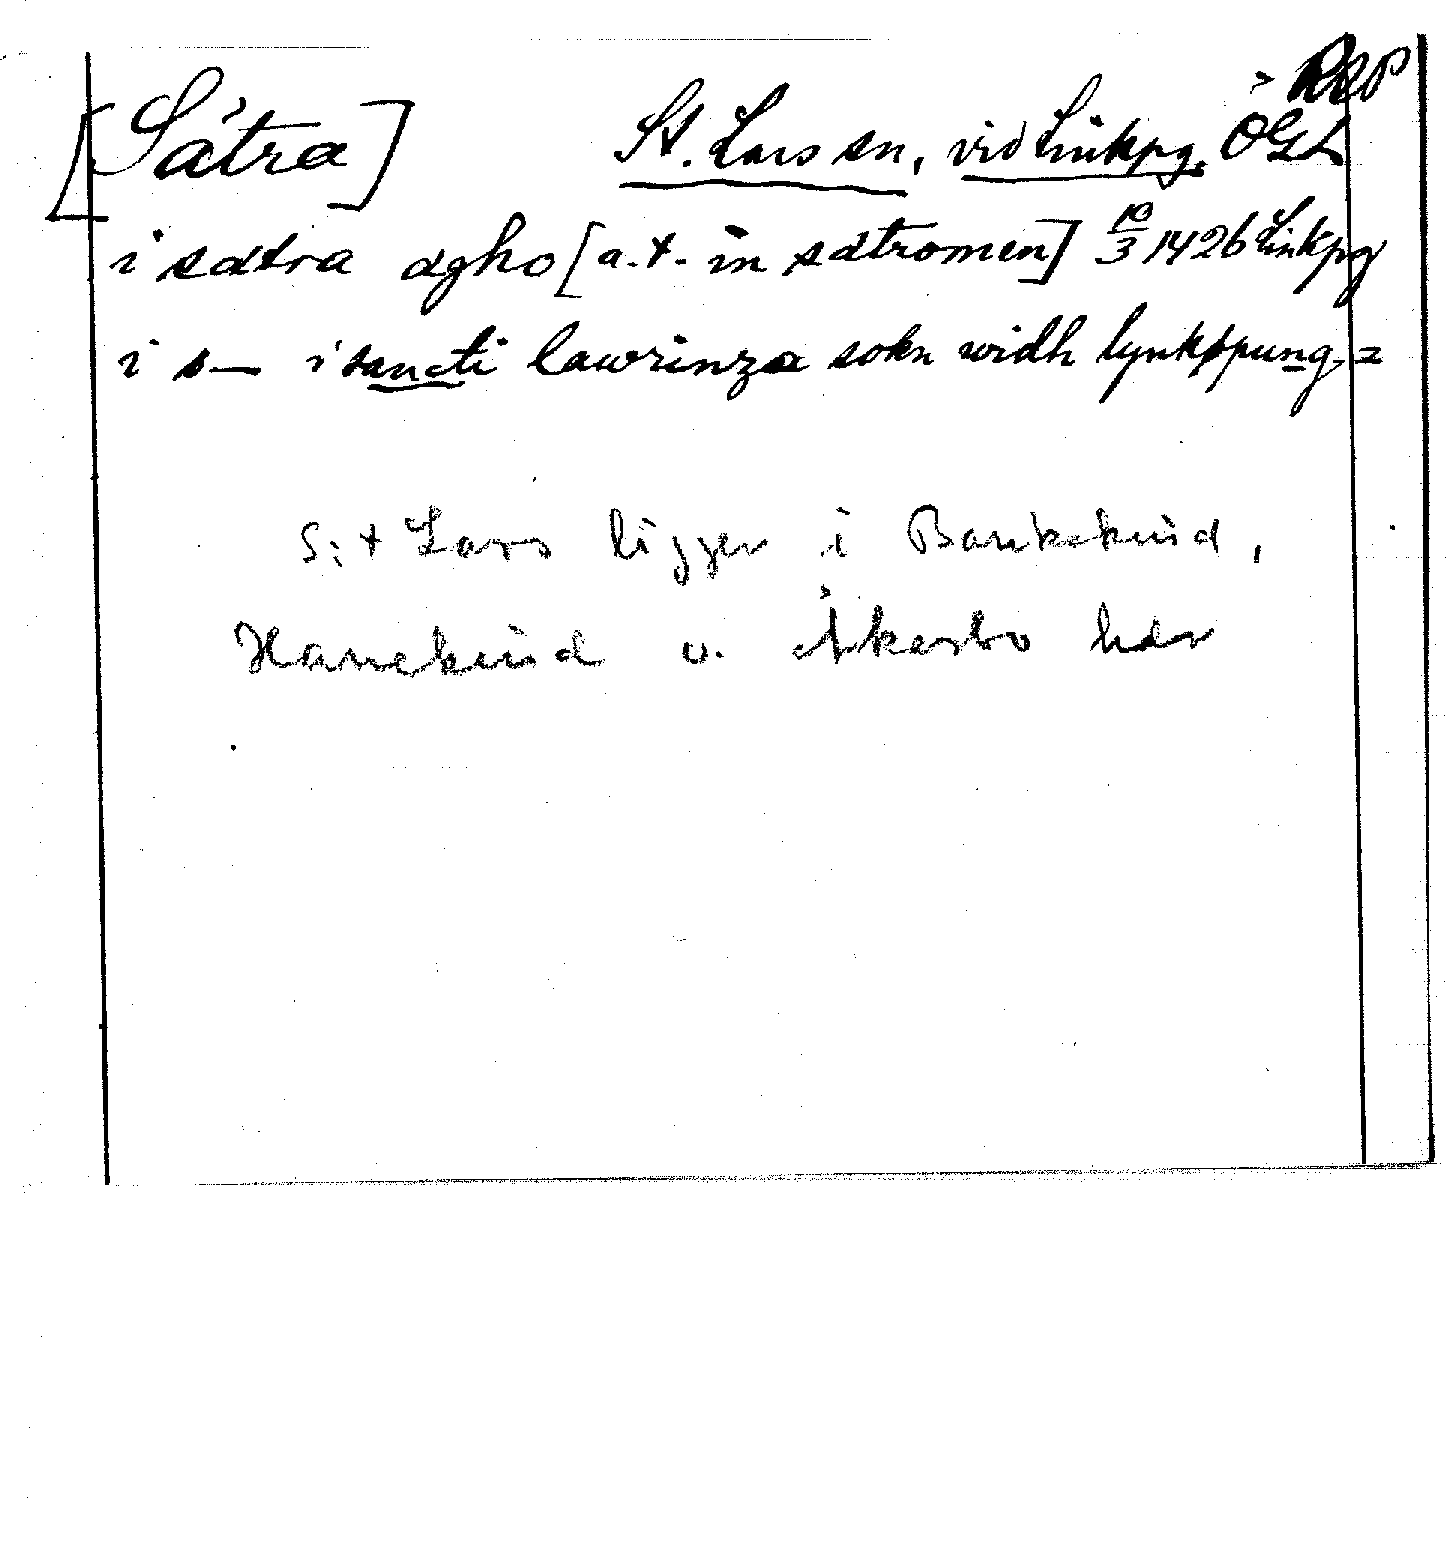 Rep
[Sätra] St. Lars sn, vid Linkpg. ÖGL
i sätra ægho [a. t. in sætromen] 10/3 1426 Linkpg
i s— i sancti lawrinza sokn widh lynkøpung =
S:t Lars ligger i Bankekind,
Hanekind o. Åkerbo hdr